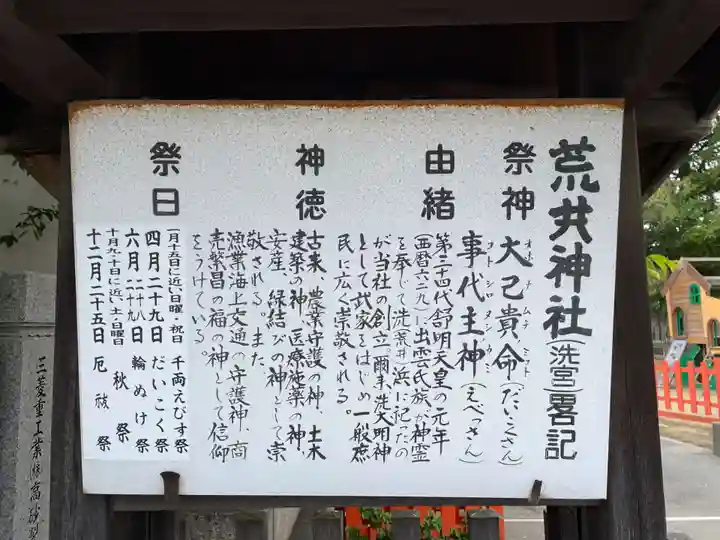 荒井神社(洗宮)畧記
祭神
大己貴命(だいこくさん)
オホナムチミコト
事代主神(えべっさん)
コトシロヌシカミ
由緒
第三十四代舒明天皇の元年
(西暦六二九)出雲氏族が神霊
を奉じて洗荒井浜に祀たの
が当社の創立、爾来洗大明神
として武家をはじめ一般庶
民に広く崇敬される。
神徳
古来、農業守護の神、土木
建築の神、医療施薬の神、
安産、縁結びの神として崇
敬される。また
漁業海上交通の守護神、商
売繁昌の福の神として信仰
をうけている。
祭日
一月十五に近い日曜・祝日 千両えびす祭
四月二十九日 だいこく祭
六月二十八二十九日 輪ぬけ祭
十月九、十日に近い土・日曜日 秋祭
十二月二五日 厄祓祭
三菱重工業㈱高砂製